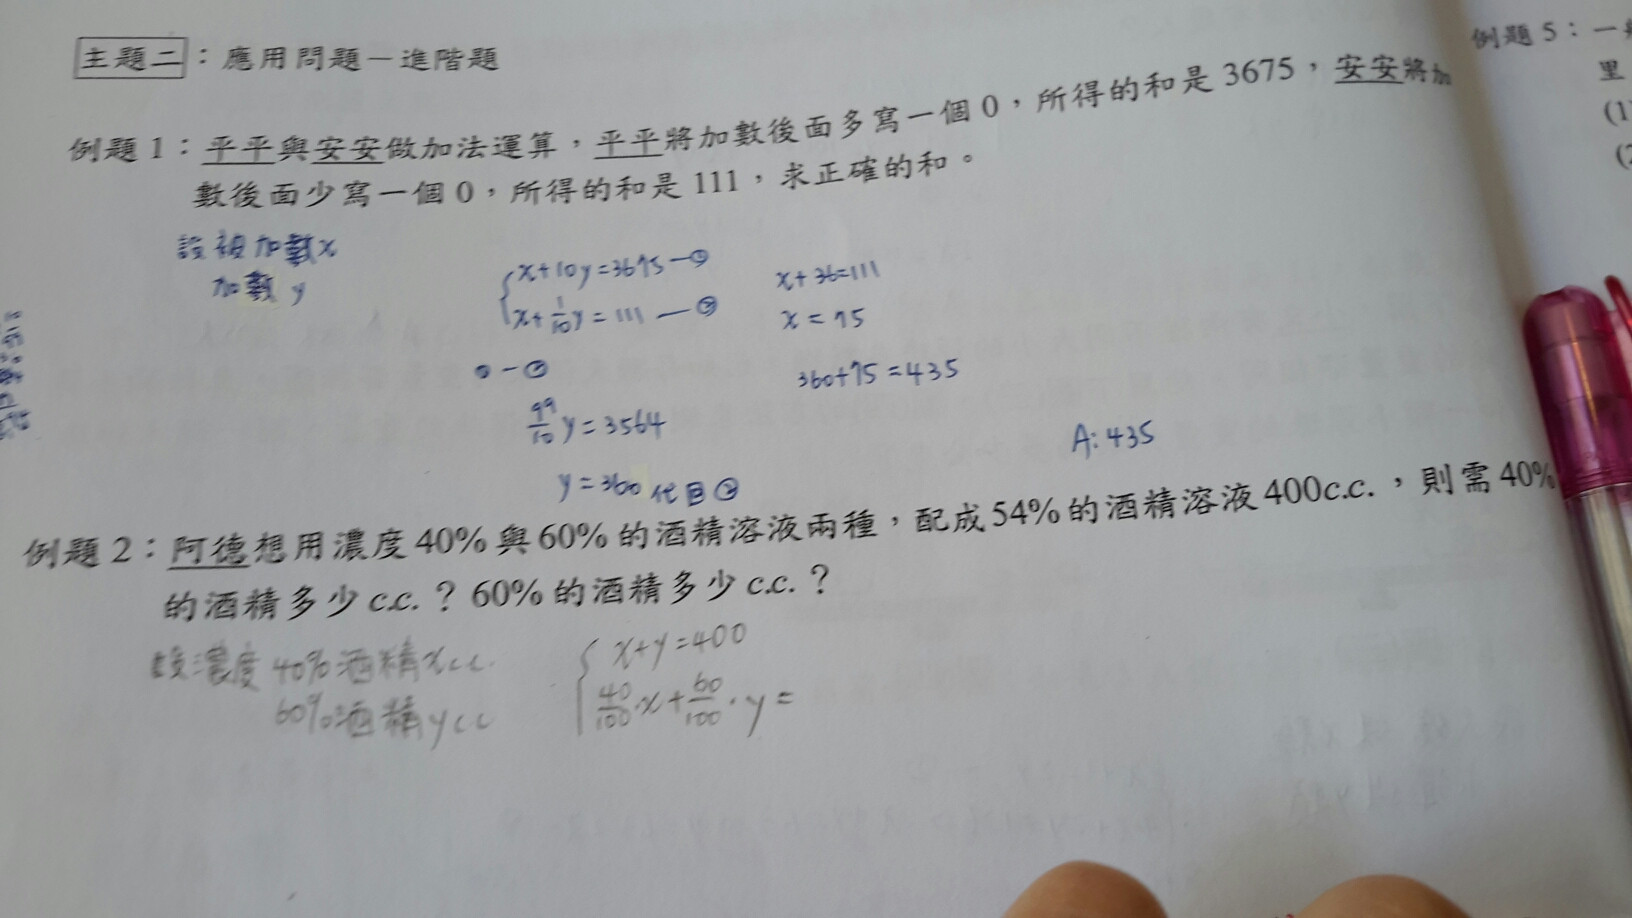 主題二：應用問題－進階題
例題1：平平與安安做加法運算，平平將加數後面多寫一個0，所得的和是3675，安安將加
數後面少寫一個0，所得的和是111，求正確的和。
設被加數x
加數y
x+10y=3675—①
x+1/10y=111—②
①-②
99/10y=3564
y=360代回②
x+36=111
x=75
360+75=435
A:435
例題2：阿德想用濃度40%與60%的酒精溶液兩種，配成54%的酒精溶液400c.c.，則需40%
的酒精多少c.c.？60%的酒精多少c.c.？
設濃度40%酒精xc.c.
60%酒精ycc
x+y=400
40/100·x+60/100·y=
例題5：一
里
(1)
(2